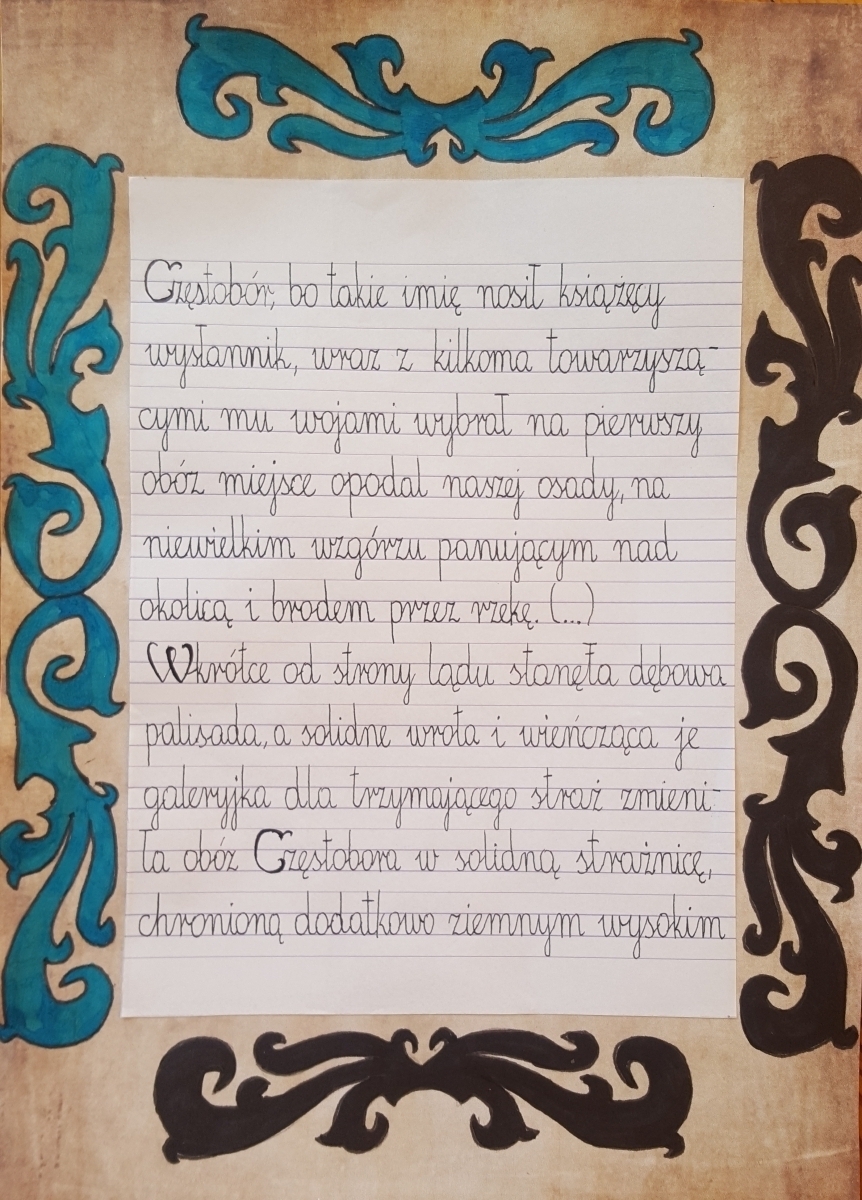 Częstobór, bo takie imię nosił książęcy
wysłannik, wraz z kilkoma towarzyszą-
cymi mu wojami wybrał na pierwszy
obóz miejsce opodal naszej osady, na
niewielkim wzgórzu panującym nad
okolicą i brodem przez rzekę. (...)
Wkrótce od strony lądu stanęła dębowa
palisada, a solidne wrota i wieńcząca je
galeryjka dla trzymającego straż zmieni-
ła obóz Częstobora w solidną strażnicę,
chronioną dodatkowo ziemnym wysokim